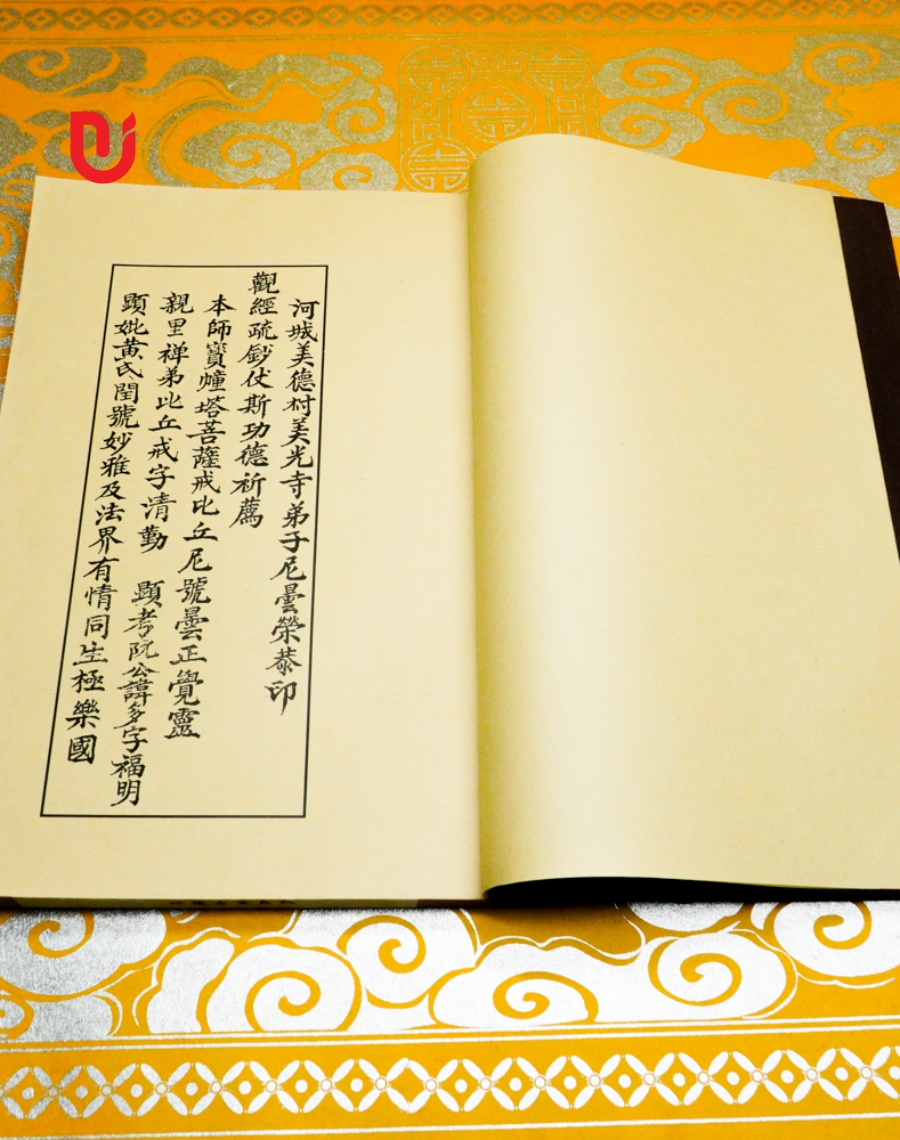 河城美德村美光寺弟子尼曇榮恭印
觀經疏鈔仗斯功德祈薦
本師寶幢塔菩薩戒比丘尼號曇正覺靈
親里禅弟比丘戒字清勤 顯考阮公諱多字福明
顯妣黄氏閏號妙雅及法界有情同生極樂國